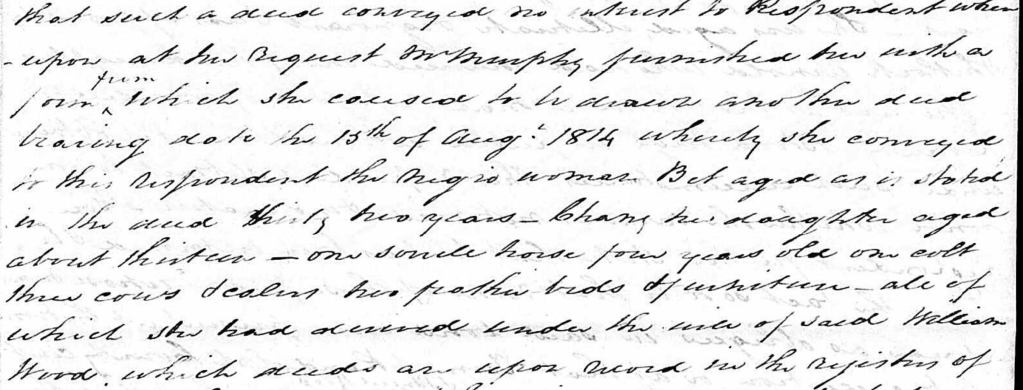 that such a deed conveyed no interest to Respondent where
-upon at her request Mr Murphy furnished her with a
form from which she caused to be drawn another deed
bearing date the 13th of Augt 1814 whereby she conveyed
to this respondent the negro woman Bet aged as is stated
in the deed thirty two years - Chany her daughter aged
about thirteen - one horse four years old one colt
three cows & calves two feather beds & furniture - all of
which she had derived under the will of said William
Wood, which deeds are upon record in the registers of